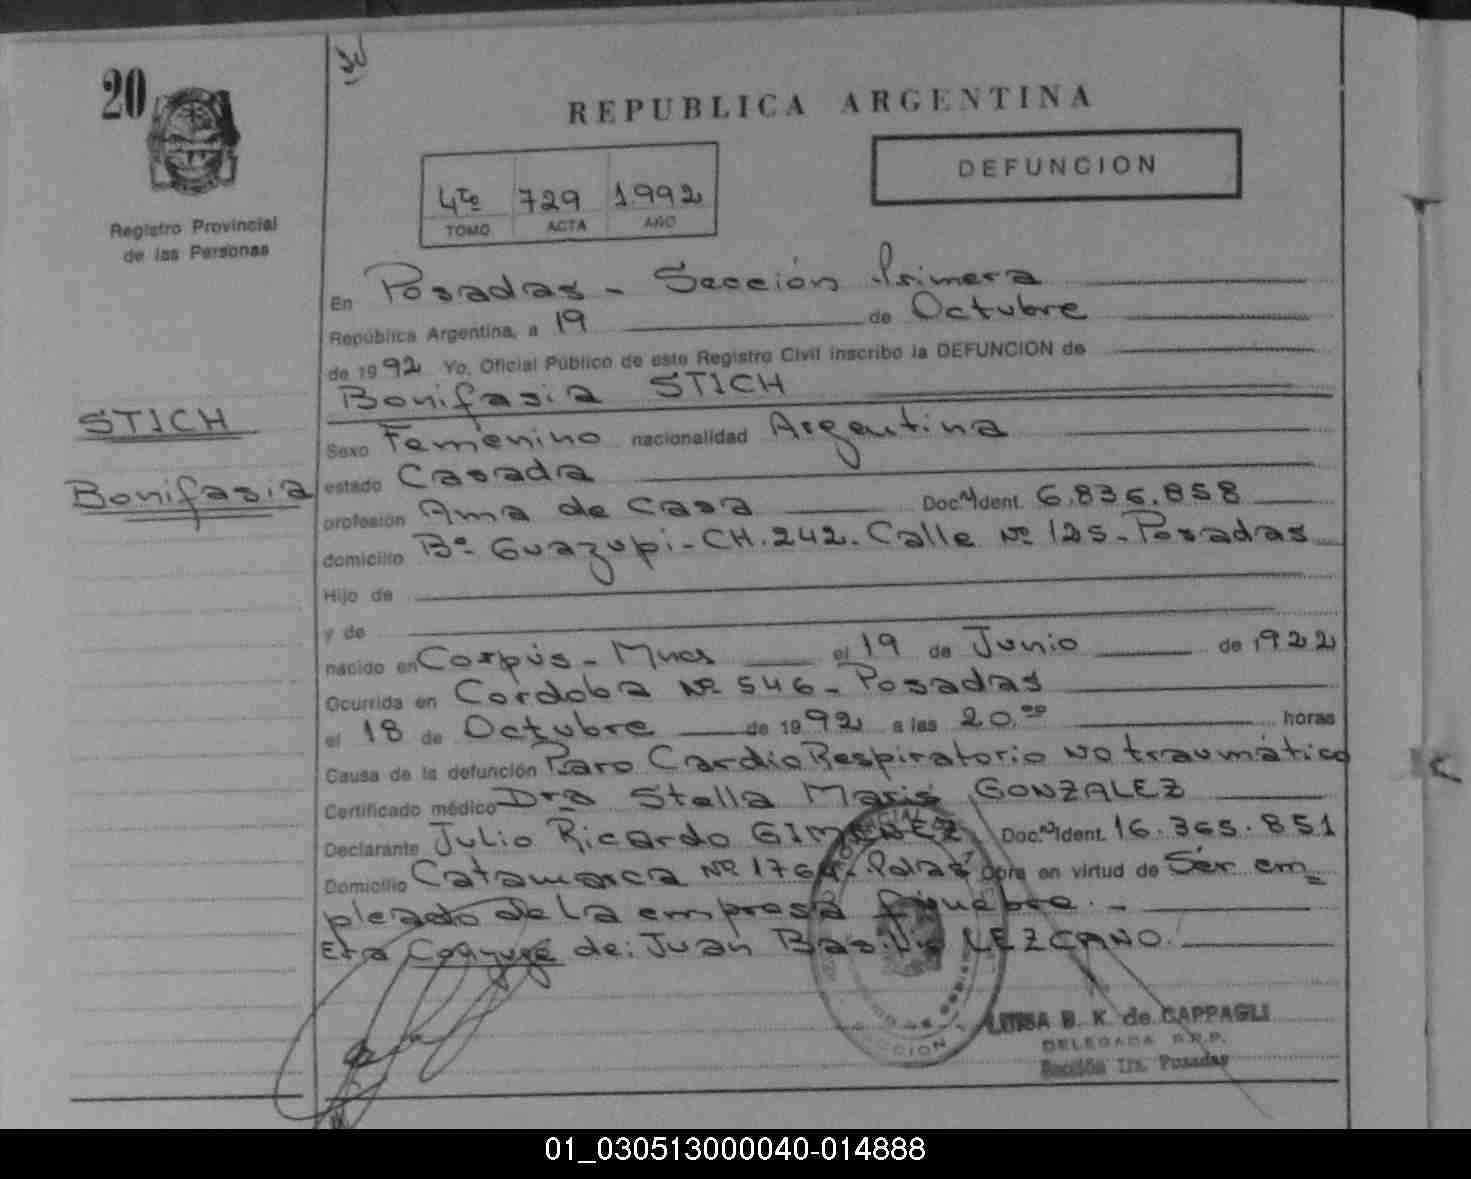 20
Registro Provincial
de las Personas
REPUBLICA ARGENTINA
DEFUNCION
4to 729 1.992
TOMO ACTA AÑO
STICH
Bonifasia
En Posadas - Sección Primera
República Argentina, a 19 de Octubre
de 1992 Yo, Oficial Público de este Registro Civil inscribo la DEFUNCION de
Bonifasia STICH
Sexo Femenino nacionalidad Argentina
estado Casada
profesión Ama de Casa Doc. Ident. 6.836.858
domicilio Bº Guazupi - CH. 242. Calle Nº 125 - Posadas
Hijo de
y de
nacido en Corpus - Mnes el 19 de Junio de 1922
Ocurrida en Cordoba Nº 546 - Posadas
el 18 de Octubre de 1992 a las 20.00 horas
Causa de la defunción Paro Cardio Respiratorio No traumático
Certificado médico Dra Stella Maris GONZALEZ
Declarante Julio Ricardo GIMENEZ Doc. Ident. 16.365.851
Domicilio Catamarca Nº 1764 - Pdas Obra en virtud de Ser em=
pleado de La empresa fúnebre. -
Era Conyuge de: Juan Basilio LEZCANO.
LUISA B. K. de CAPPAGLI
DELEGADA R.P.P.
Sección 1ra. Posadas
01_030513000040-014888